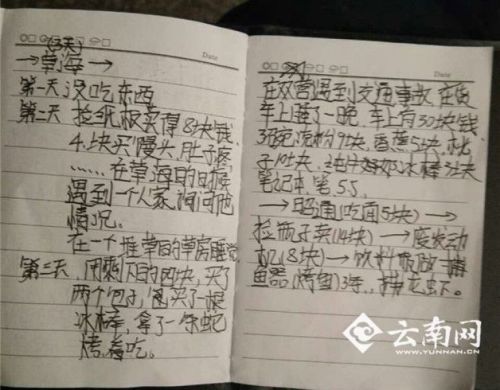 (3天)
Date
→草海→
第一天 没吃东西
第二天 捡纸板卖得8块钱
4块买馒头,肚子疼,
……在草海的时候
遇到一个人家,询问他
情况。
在一个堆草的草房睡觉
第三天 用剩下的四块,买了
两个包子,买了一根
冰棒,拿了一条蛇
烤着吃。
Date
在双营遇到交通事故,在货
车上睡了一晚,车上有50块钱
3碗凉粉9块,香蕉5块,桃
子10块,纯牛奶冰棒3块
笔记本,笔5.5
→昭通(吃面5块)→
捡瓶子卖(14块)→废发动
机(8块)→饮料瓶做捕
鱼器(烤鱼)3条,捕龙虾。
云南网
WWW.YUNNAN.CN